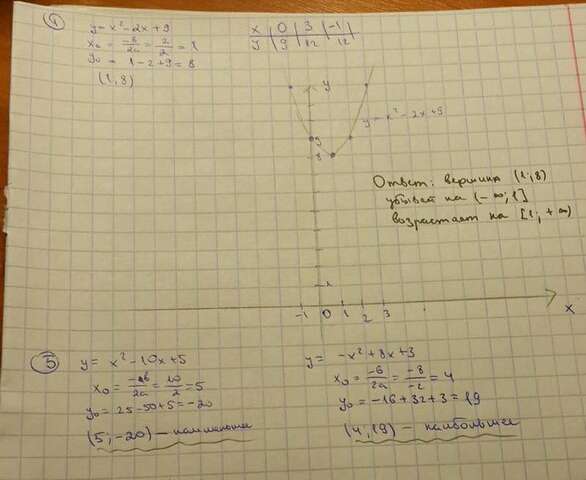 ④
y = x² - 2x + 9
x₀ = -b/2a = 2/2 = 1
y₀ = 1 - 2 + 9 = 8
(1, 8)
x | 0 | 3 | -1
y | 9 | 12 | 12
y
y = x² - 2x + 9
9
8
Ответ: вершина (1; 8)
убывает на (-∞; 1]
возрастает на [1; +∞)
1
-1 0 1 2 3
x
⑤
y = x² - 10x + 5
x₀ = -b/2a = 10/2 = 5
y₀ = 25 - 50 + 5 = -20
(5; -20) — наименьшее
y = -x² + 8x + 3
x₀ = -b/2a = -8/-2 = 4
y₀ = -16 + 32 + 3 = 19
(4, 19) — наибольшее